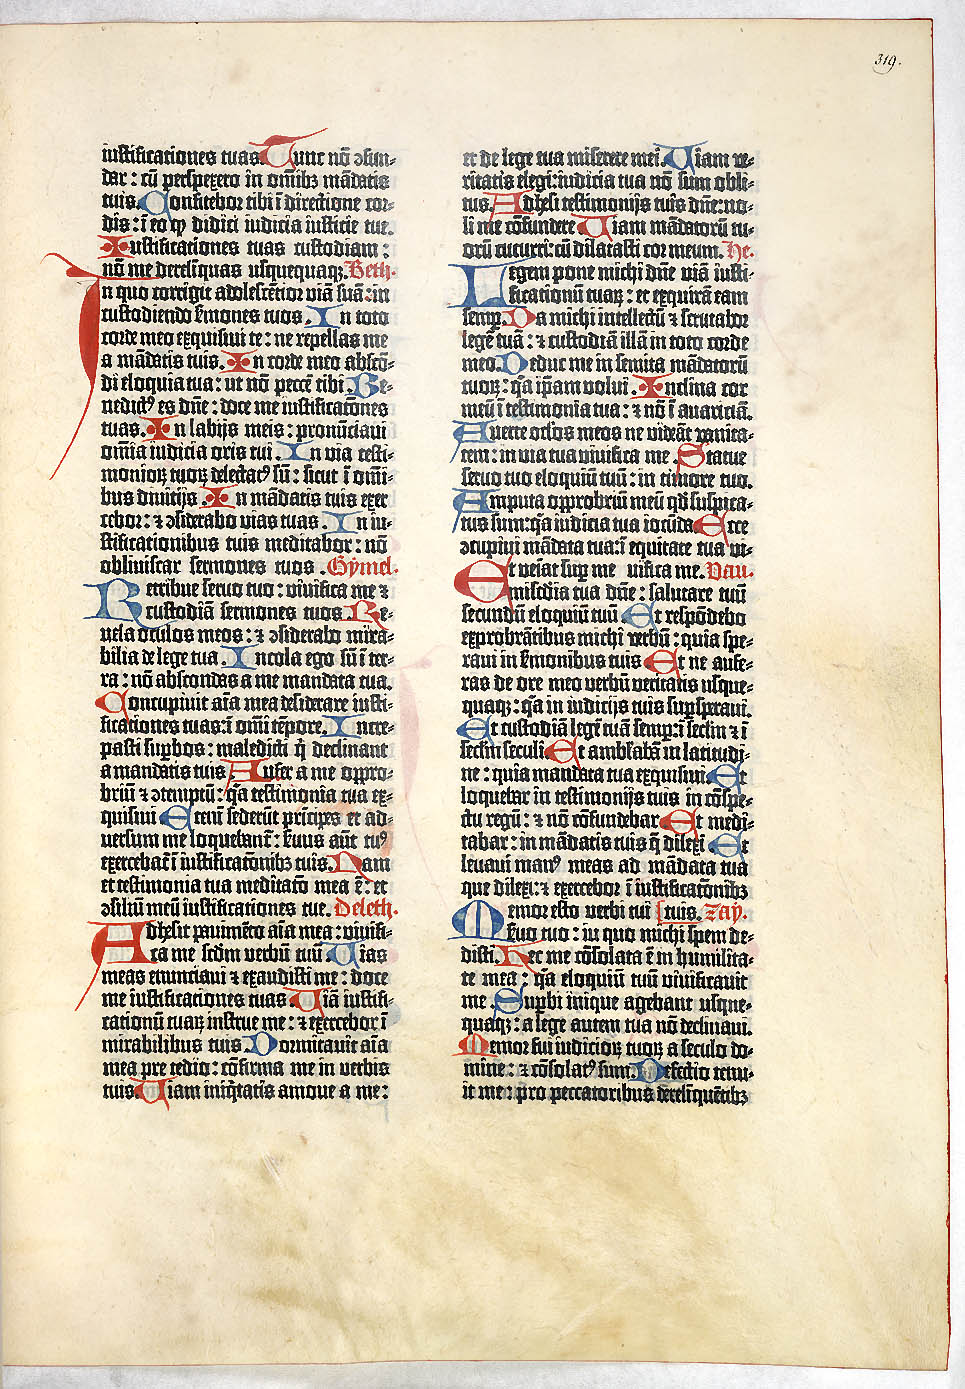 319.
iustificationes tuas. Tunc nō ↄfun-
dar: cū perspexero in om̄ibꝫ mādatis
tuis. Confitebor tibi ī directione cor-
dis: ī eo ꝙ didici iudicia iusticie tue.
Iustificationes tuas custodiam:
nō me derelīquas usquequaqꝫ. Beth.
In quo corrigit adolescētior viā suā: in
custodiendo s̄mones tuos. In toto
corde meo exquisivi te: ne repellas me
a mādatis tuis. In corde meo abscō-
di eloquia tua: ut nō peccē tibi. Be-
nedictꝰ es dn̄e: doce me iustificatōnes
tuas. In labijs meis: pronūciavi
om̄ia iudicia oris tui. In via testi-
monioꝝ tuoꝝ delectatꝰ sū: sicut ī om̄i-
bus divicijs. In mādatis tuis exer-
cebor: ⁊ ↄsiderabo vias tuas. In iu-
stificationibus tuis meditabor: nō
obliviscar sermones tuos. Gymel.
Retribue servo tuo: vivifica me ⁊
custodiā sermones tuos. Re-
vela oculos meos: ⁊ ↄsiderabo mira-
bilia de lege tua. Incola ego sū ī ter-
ra: nō abscondas a me mandata tua.
Concupivit aīa mea desiderare iusti-
ficationes tuas: ī om̄i tēpore. Incre-
pasti suꝑbos: maledicti q̄ declinant
a mandatis tuis. Aufer a me oppro-
briū ⁊ ↄtemptū: qͣ testimonia tua ex-
quisivi. Etenī sederūt prīcipes et ad-
versum me loquebant̄: s̄vus aūt tuꝰ
exercebat̄ ī iustificatōnibꝫ tuis. Nam
et testimonia tua meditatō mea ē: et
ↄsiliū meū iustificationes tue. Deleth.
Adhesit pavimēto aīa mea: vivifi-
ca me scdm verbū tuū. Vias
meas enunciavi ⁊ exaudisti me: doce
me iustificationes tuas. Viā iustifi-
cationū tuaꝝ instrue me: ⁊ exercebor ī
mirabilibus tuis. Dormitavit aīa
mea pre tedio: cōfirma me in verbis
tuis. Viam iniqͥtatis amove a me:
et de lege tua miserere mei. Viam ve-
ritatis elegi: iudicia tua nō sum obli-
tus. Adhesi testimonijs tuis dn̄e: no-
li me cōfundere. Viam mādatorū tu-
orū cucurri: cū dilatasti cor meum. He.
Legem pone michi dn̄e viā iusti-
ficationū tuaꝝ: et exquirā eam
semꝑ. Da michi intellectū ⁊ scrutabor
legē tuā: ⁊ custodiā illā in toto corde
meo. Deduc me in semita mādatorū
tuoꝝ: qͣ ip̄am volui. Inclina cor
meū ī testimonia tua: ⁊ nō ī avariciā.
Averte oclos meos ne videāt vanita-
tem: in via tua vivifica me. Statue
servo tuo eloquiū tuū: in timore tuo.
Amputa opprobriū meū qd̄ suspica-
tus sum: qͣ iudicia tua iocūda. Ecce
ↄcupivi mādata tua: ī equitate tua vi-
vifica me. Vau.
Et veiat suꝑ me
misc̄dia tua dn̄e: salutare tuū
secundū eloquiū tuū. Et respōdebo
exprobrātibus michi verbū: quia spe-
ravi in s̄monibus tuis. Et ne aufe-
ras de ore meo verbū veritatis usque-
quaqꝫ: qͣ in iudicijs tuis suꝑspravi.
Et custodiā legē tuā semꝑ: ī seclm ⁊ ī
seclm seculi. Et amblabā in latitudi-
ne: quia mandata tua exquisivi. Et
loquebar in testimonijs tuis in cōspe-
ctu regū: ⁊ nō cōfundebar. Et medi-
tabar: in mādatis tuis q̄ dilexi. Et
levavi manꝰ meas ad mādata tua
que dilexi: ⁊ exercebor ī iustificatōnibꝫ
tuis. Zay.
Memor esto verbi tui
s̄vo tuo: in quo michi spem de-
disti. Hec me cōsolata ē in humilita-
te mea: qͣ eloquiū tuū vivificavit
me. Suꝑbi inique agebant usque-
quaqꝫ: a lege autem tua nō declinavi.
Memor fui iudicioꝝ tuoꝝ a seculo do-
mine: ⁊ cōsolatꝰ sum. Defectio tenu-
it me: pro peccatoribus derelīquētibꝫ